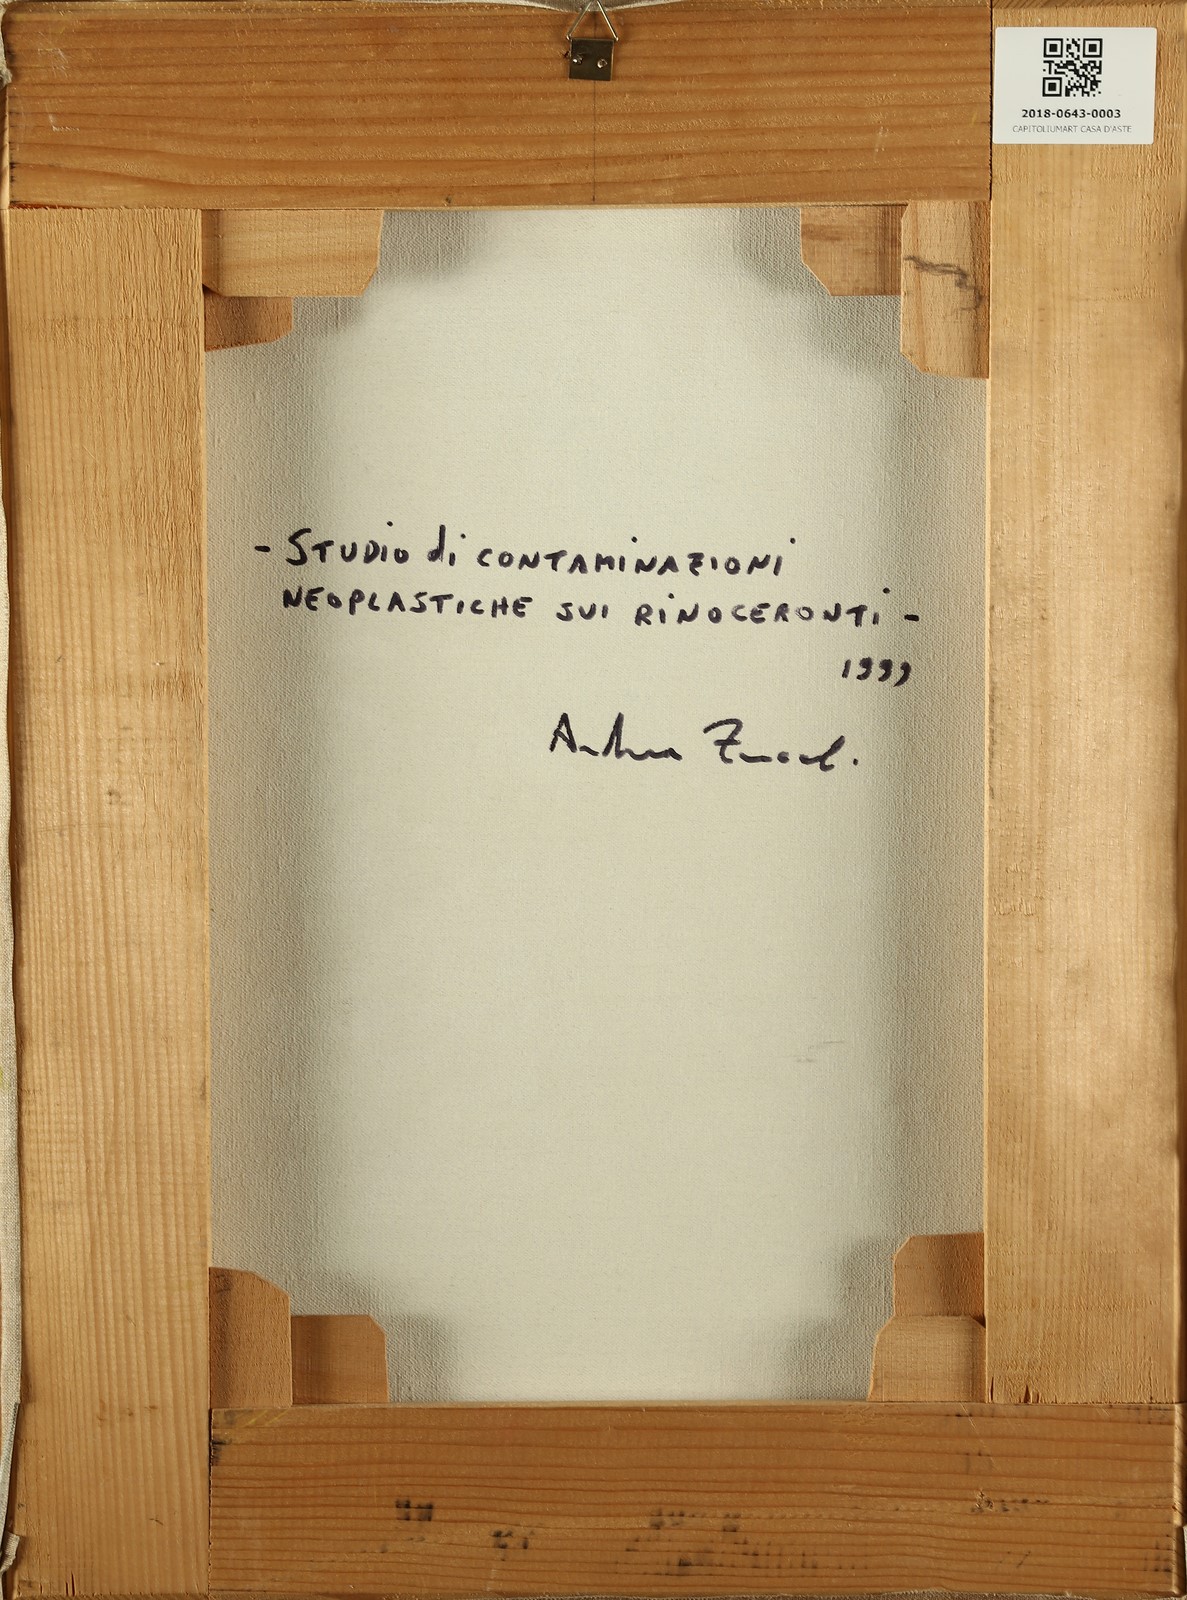 2018-0643-0003
CAPITOLIUMART CASA D'ASTE
- STUDIO di CONTAMINAZIONI
NEOPLASTICHE SUI RINOCERONTI -
1999
Andrea